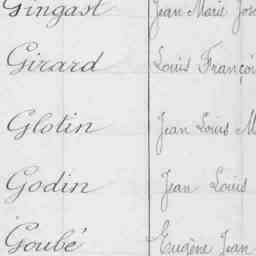 Gingast Jean Marie
Girard Louis Françoi
Glotin Jean Louis M
Godin Jean Louis
Goubé Eugène Jean